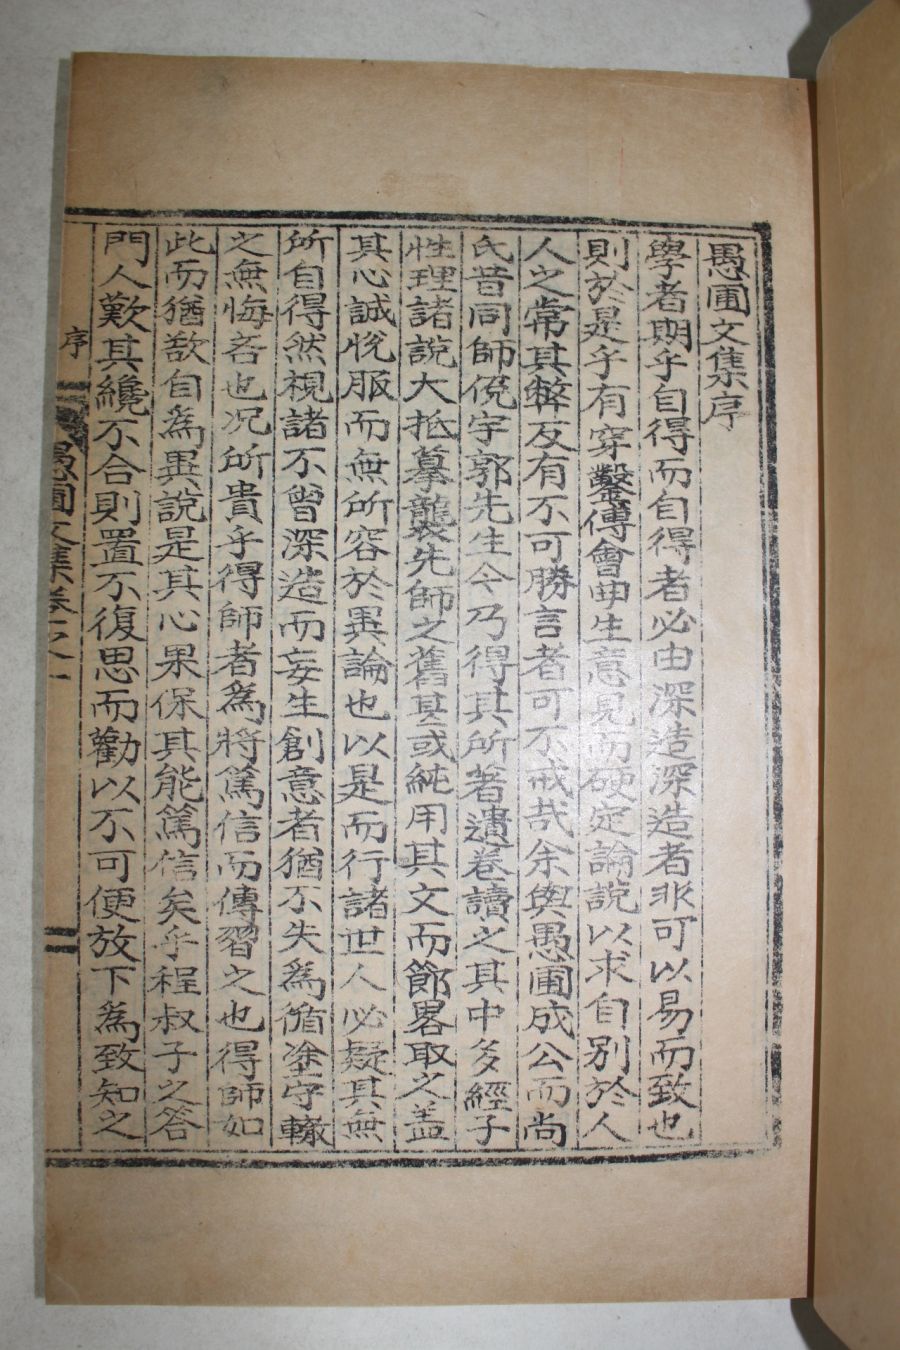 愚圃文集序
學者期乎自得而自得者必由深造深造者非可以易而致也
則於是乎有穿鑿傅會曲生意見而硬定論說以求自別於人
人之常其弊反有不可勝言者可不戒哉余與愚圃成公而尚
氏昔同師俛宇郭先生今乃得其所著遺卷讀之其中多經子
性理諸說大抵摹襲先師之舊甚或純用其文而節畧取之盖
其心誠悅服而無所容於異論也以是而行諸世人必疑其無
所自得然視諸不曾深造而妄生創意者猶不失為循塗守轍
之無悔吝也况所貴乎得師者為將篤信而傳習之也得師如
此而猶欲自為異說是其心果保其能篤信矣乎程叔子之答
門人歎其纔不合則置不復思而勸以不可便放下為致知之
序
愚圃文集卷之一